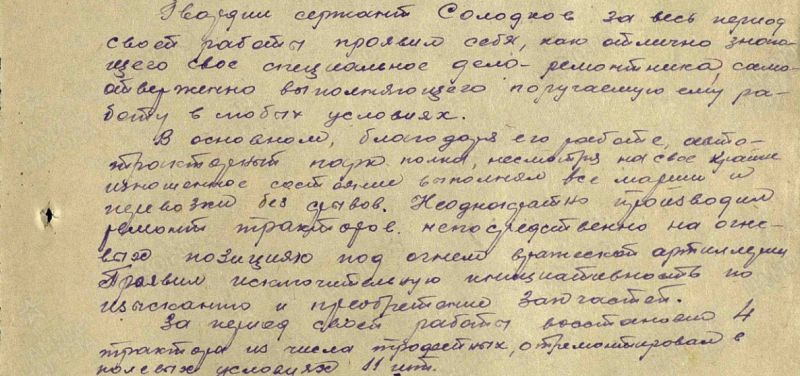 Гвардии сержант Солодков за весь период
своей работы проявил себя, как отлично знаю-
щего свое специальное дело - ремонтника, само-
отверженно выполняющего поручаемую ему ра-
боту в любых условиях.
В основном, благодаря его работе, авто-
тракторный парк полка, несмотря на свое крайне
изношенное состояние выполнял все марши и
перевозки без срывов. Неоднократно производил
ремонт тракторов непосредственно на огне-
вых позициях под огнем вражеской артиллерии
Проявил исключительную инициативность по
изысканию и преобретение запчастей.
За период своей работы восстановил 4
трактора из числа трофейных, отремонтировал в
полевых условиях 11 шт.